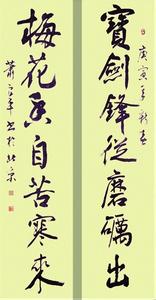 寶劍鋒從磨礪出
庚寅年新春
梅花香自苦寒來
蕭
書於北京